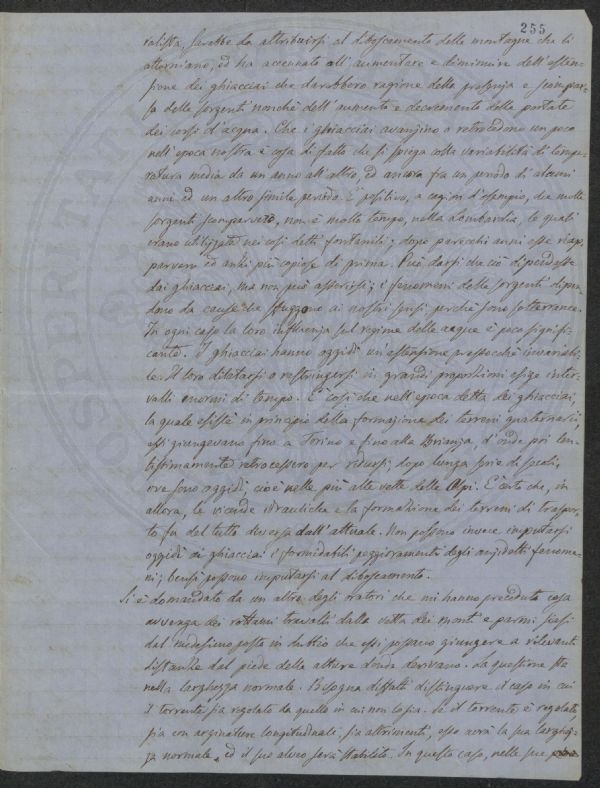 255
ralista, sarebbe da attribuirsi al diboscamento delle montagne che li
attorniano, ed ha accennato all'aumentare e diminuire dell'esten-
sione dei ghiacciai che darebbero ragione della presenza e scompar-
sa delle sorgenti nonchè dell'aumento e decremento delle portate
dei corsi d'acqua. Che i ghiacciai avanzino o retrocedano un poco
nell'epoca nostra è cosa di fatto che si spiega colla variabilità di tempe-
ratura media da un anno all'altro, ed ancora fra un periodo di alcuni
anni ed un altro simile periodo. È positivo, a cagion d'esempio, che molte
sorgenti scomparvero, non è molto tempo, nella Lombardia, le quali
erano utilizzate nei così detti fontanili; dopo parecchi anni esse riap-
parvero ed anzi più copiose di prima. Può darsi che ciò dipendesse
dai ghiacciai, ma non può asserirsi; i fenomeni delle sorgenti dipen-
dono da cause che sfuggono ai nostri sensi perchè sono sotterranee.
In ogni caso la loro influenza sul regime delle acque è poco signifi-
cante. I ghiacciai hanno oggidì un'estensione pressochè invariabi-
le. Il loro dilatarsi o restringersi in grandi proporzioni esige inter-
valli enormi di tempo. È così che nell'epoca detta dei ghiacciai,
la quale esistè in principio della formazione dei terreni quaternarii,
essi giungevano fino a Torino e fino alla Brianza, d'onde poi len-
tissimamente retrocessero per ridursi, dopo lunga serie di secoli,
ove sono oggidì; cioè nelle più alte vette delle Alpi. È certo che, in
allora, le vicende idrauliche e la formazione dei terreni di traspor-
to fu del tutto diversa dall'attuale. Non possono invece imputarsi
oggidì ai ghiacciai i formidabili peggioramenti degli anzidetti fenome-
ni; bensì possono imputarsi al diboscamento.
Si è domandato da un altro degli oratori che mi hanno preceduto cosa
avvenga dei rottami travolti dalla vetta dei monti e parmi siasi
dal medesimo posto in dubbio che essi possano giungere a rilevanti
distanze dal piede delle alture donde derivano. La questione sta
nella larghezza normale. Bisogna difatti distinguere il caso in cui
il torrente sia regolato da quello in cui non lo sia. Se il torrente è regolato,
sia con arginature longitudinali, sia altrimenti, esso avrà la sua larghez-
za normale, ed il suo alveo sarà stabilito. In questo caso, nelle sue